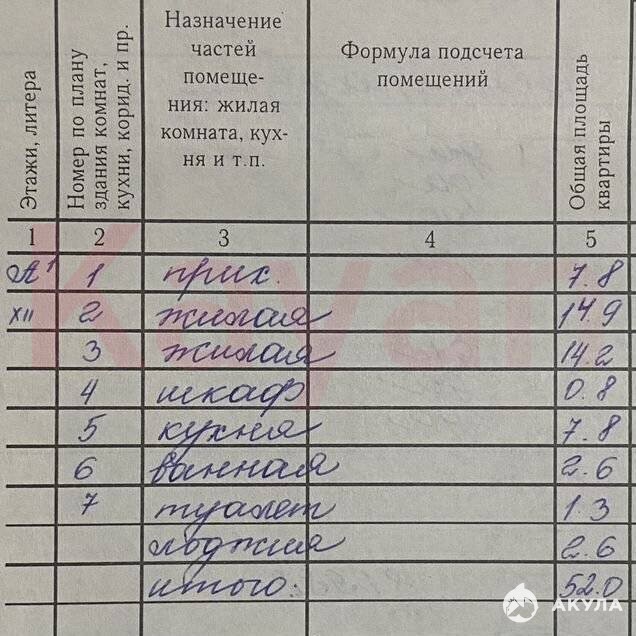 Этажи, литера
Номер по плану
здания комнат,
кухни, корид. и пр.
Назначение
частей
помеще-
ния: жилая
комната, кух-
ня и т.п.
Формула подсчета
помещений
Общая площадь
квартиры
1 2 3 4 5
А¹ 1 прих. 7.8
XII 2 жилая 14.9
3 жилая 14.2
4 шкаф 0.8
5 кухня 7.8
6 ванная 2.6
7 туалет 1.3
лоджия 2.6
итого: 52.0
АКУЛА